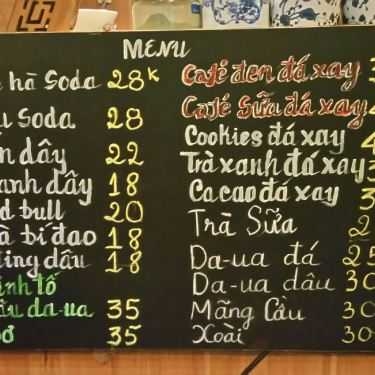 MENU
hà Soda 28k
Soda 28
dây 22
anh dây 18
bull 20
bí đao 18
dâu 18
tố
dâu da-ua 35
35
Café đen đá xay
Café Sữa đá xay
Cookies đá xay
Trà xanh đá xay
Cacao đá xay
Trà Sữa 2
Da-ua đá 25
Da-ua dâu 30
Mãng Cầu 30
Xoài 30